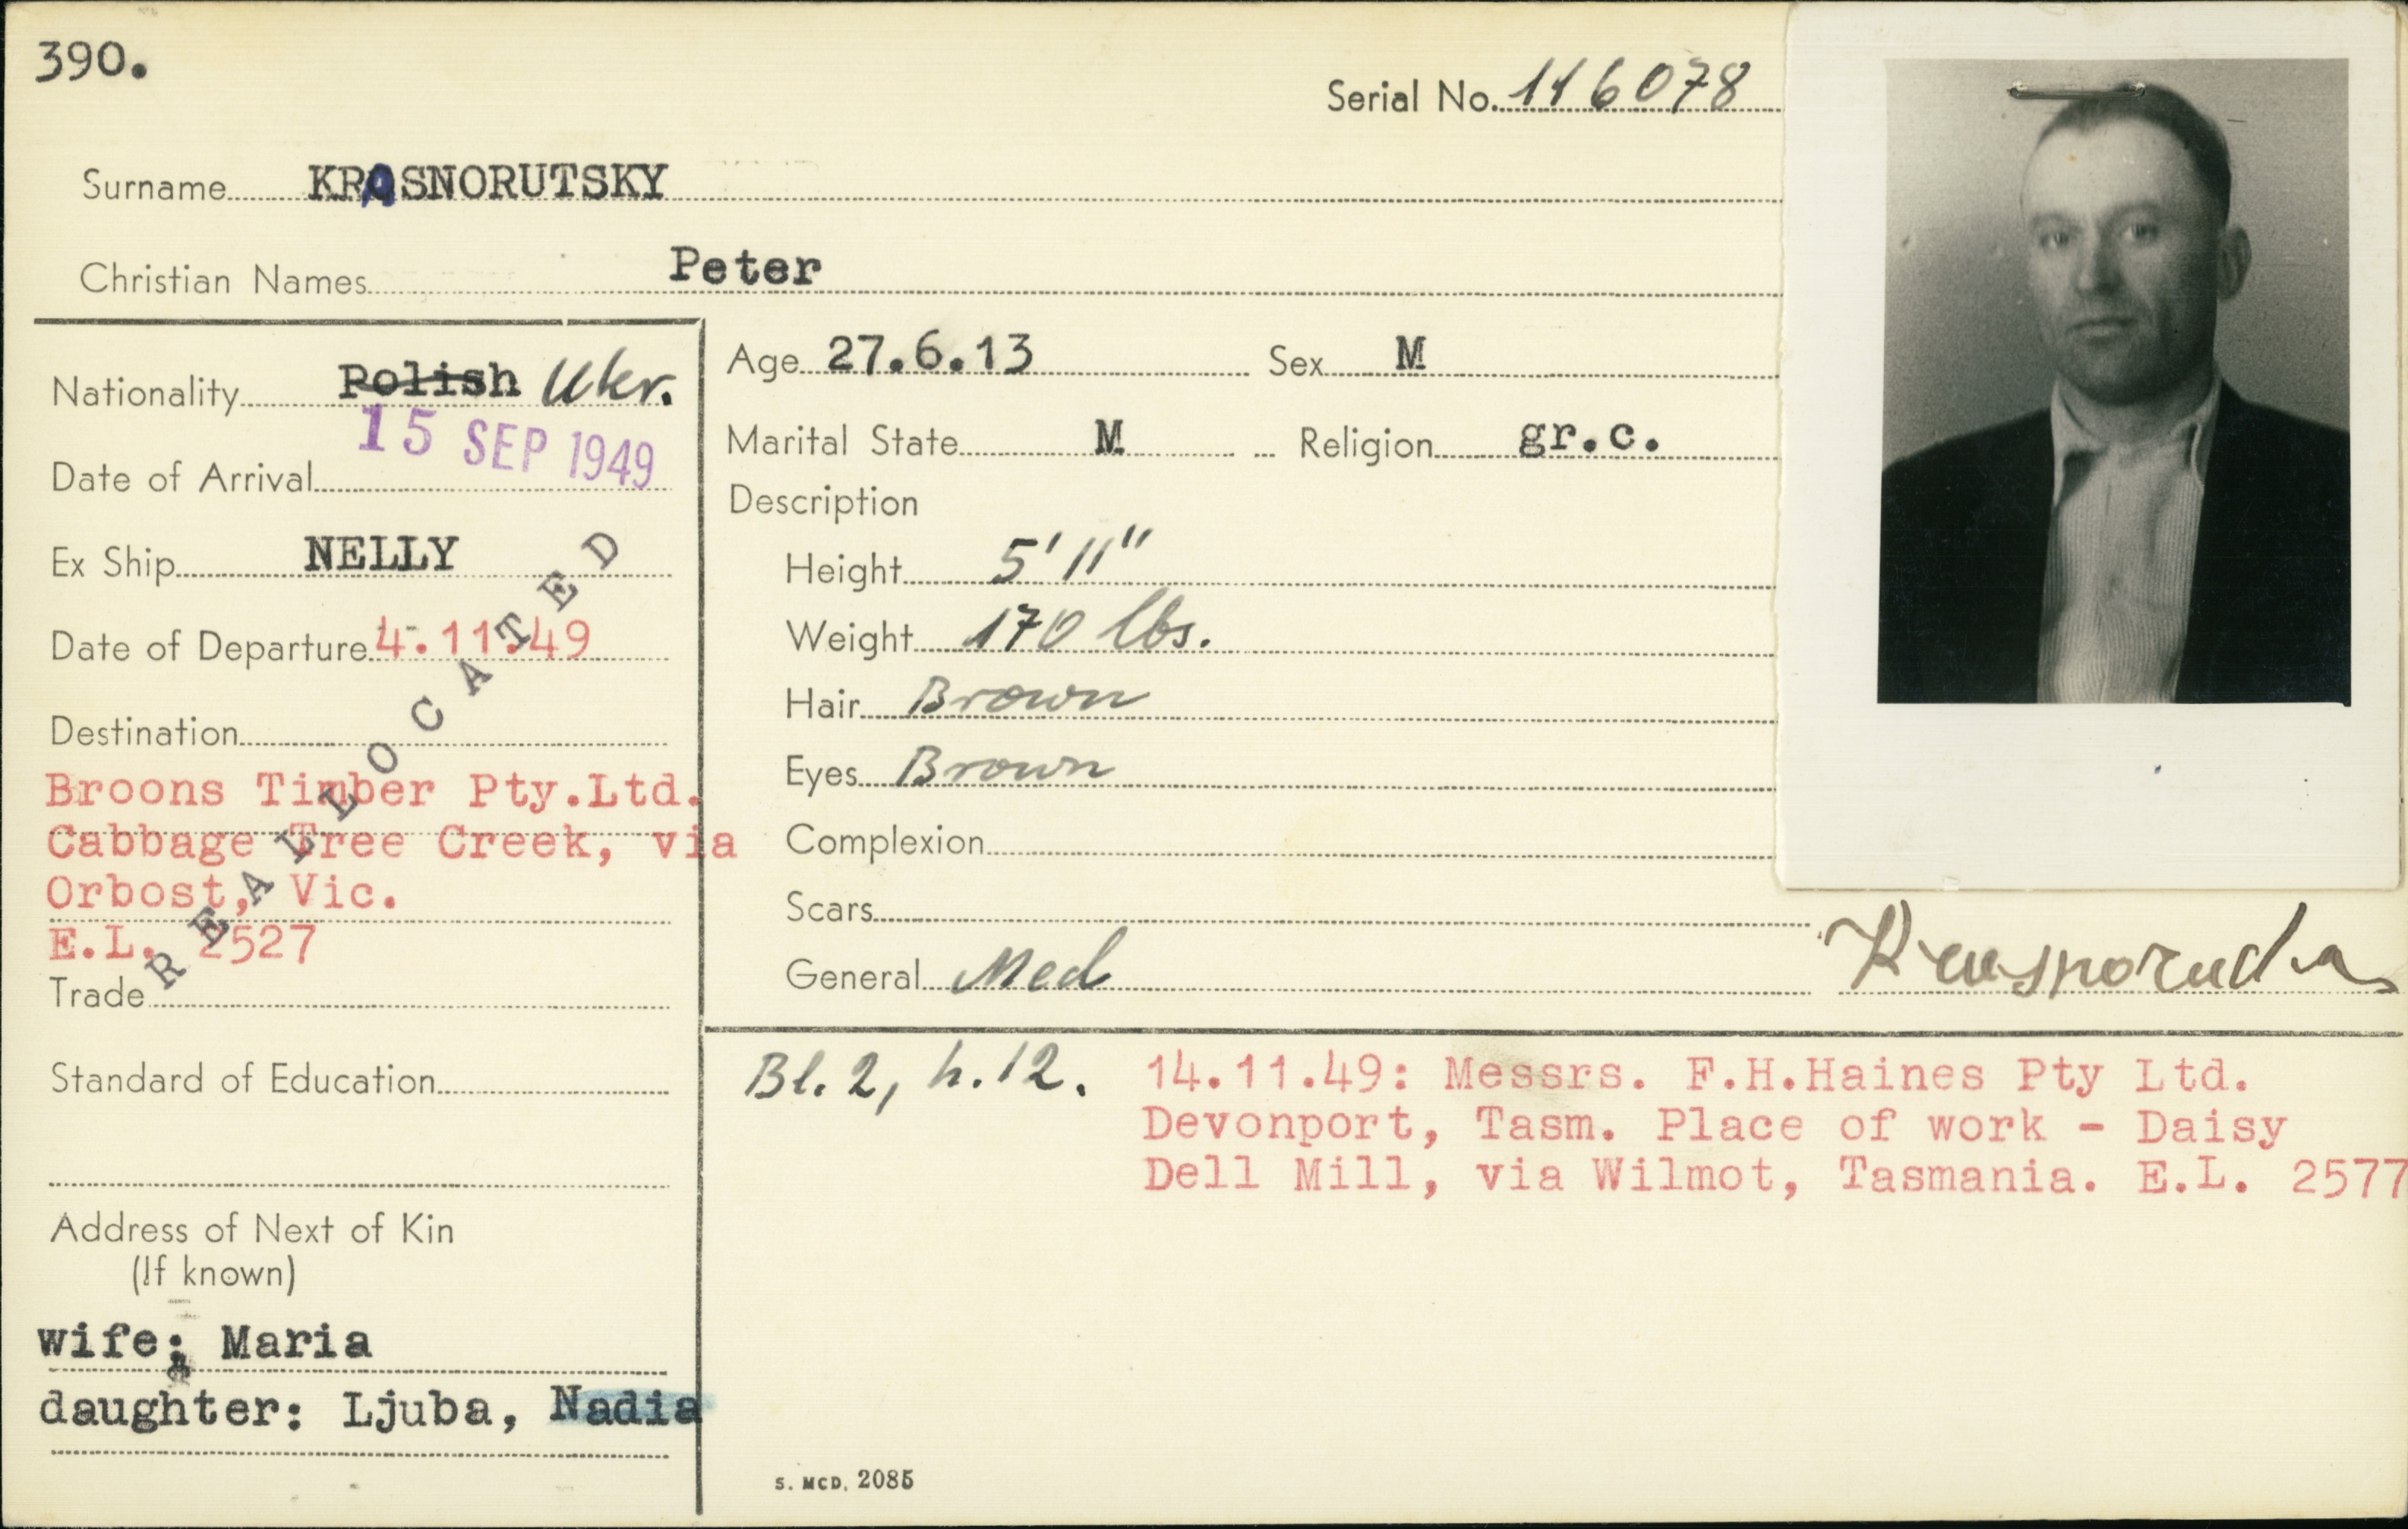 390.
Serial No. 116078
Surname KRASNORUTSKY
Christian Names Peter
Nationality Polish Ukr.
Date of Arrival 15 SEP 1949
Ex Ship NELLY
Date of Departure 4.11.49
Destination
Broons Timber Pty.Ltd.
Cabbage Tree Creek, via
Orbost, Vic.
E.L. 2527
REALLOCATED
Trade
Standard of Education
Address of Next of Kin
(If known)
wife: Maria
daughter: Ljuba, Nadia
Age 27.6.13 Sex M
Marital State M Religion gr.c.
Description
Height 5' 11"
Weight 170 lbs.
Hair Brown
Eyes Brown
Complexion
Scars
General Med
Bl. 2, h. 12.
14.11.49: Messrs. F.H.Haines Pty Ltd.
Devonport, Tasm. Place of work - Daisy
Dell Mill, via Wilmot, Tasmania. E.L. 2577
S. MCD. 2085